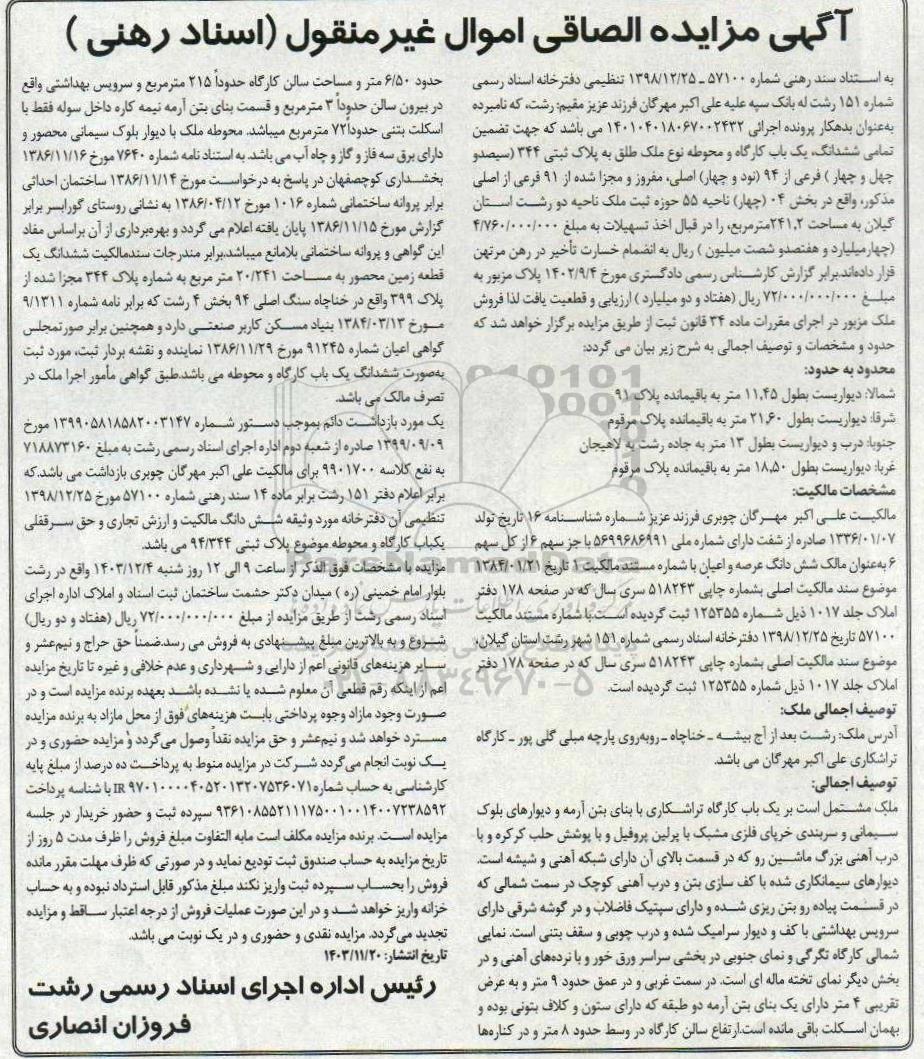 آگهی مزایده الصاقی اموال غیرمنقول (اسناد رهنی )
به استناد سند رهنی شماره ۵۷۱۰۰ ـ ۱۳۹۸/۱۲/۲۵ تنظیمی دفترخانه اسناد رسمی
شماره ۱۵۱ رشت له بانک سپه علیه علی اکبر مهرگان فرزند عزیز مقیم: رشت، که نامبرده
به‌عنوان بدهکار پرونده اجرائی ۱۴۰۱۰۴۰۱۸۰۶۷۰۰۲۴۳۲ می باشد که جهت تضمین
تمامی ششدانگ، یک باب کارگاه و محوطه نوع ملک طلق به پلاک ثبتی ۳۴۴ (سیصدو
چهل و چهار ) فرعی از ۹۴ (نود و چهار) اصلی، مفروز و مجزا شده از ۹۱ فرعی از اصلی
مذکور، واقع در بخش ۰۴ (چهار) ناحیه ۵۵ حوزه ثبت ملک ناحیه دو رشت استان
گیلان به مساحت ۲۴۱,۲مترمربع، را در قبال اخذ تسهیلات به مبلغ ۴/۷۶۰/۰۰۰/۰۰۰
(چهارمیلیارد و هفتصدو شصت میلیون ) ریال به انضمام خسارت تأخیر در رهن مرتهن
قرار داده‌اند.برابر گزارش کارشناس رسمی دادگستری مورخ ۱۴۰۲/۹/۴ پلاک مزبور به
مبلغ ۷۲/۰۰۰/۰۰۰/۰۰۰ ریال (هفتاد و دو میلیارد ) ارزیابی و قطعیت یافت لذا فروش
ملک مزبور در اجرای مقررات ماده ۳۴ قانون ثبت از طریق مزایده برگزار خواهد شد که
حدود و مشخصات و توصیف اجمالی به شرح زیر بیان می گردد:
محدود به حدود:
شمالا: دیواریست بطول ۱۱,۴۵ متر به باقیمانده پلاک ۹۱
شرقا: دیواریست بطول ۲۱,۶۰ متر به باقیمانده پلاک مرقوم
جنوبا: درب و دیواریست بطول ۱۳ متر به جاده رشت به لاهیجان
غربا: دیواریست بطول ۱۸,۵۰ متر به باقیمانده پلاک مرقوم
مشخصات مالکیت:
مالکیت علی اکبر مهرگان چوبری فرزند عزیز شماره شناسنامه ۱۶ تاریخ تولد
۱۳۳۶/۰۱/۰۷ صادره از شفت دارای شماره ملی ۵۶۹۹۶۸۶۹۹۱ با جز سهم ۶ از کل سهم
۶ به‌عنوان مالک شش دانگ عرصه و اعیان با شماره مستند مالکیت ۱ تاریخ ۱۳۸۴/۰۱/۲۱
موضوع سند مالکیت اصلی بشماره چاپی ۵۱۸۲۴۳ سری سال که در صفحه ۱۷۸ دفتر
املاک جلد ۱۰۱۷ ذیل شماره ۱۲۵۳۵۵ ثبت گردیده است.با شماره مستند مالکیت
۵۷۱۰۰ تاریخ ۱۳۹۸/۱۲/۲۵ دفترخانه اسناد رسمی شماره ۱۵۱ شهر رشت استان گیلان،
موضوع سند مالکیت اصلی بشماره چاپی ۵۱۸۲۴۳ سری سال که در صفحه ۱۷۸ دفتر
املاک جلد ۱۰۱۷ ذیل شماره ۱۲۵۳۵۵ ثبت گردیده است.
توصیف اجمالی ملک:
آدرس ملک: رشت بعد از آج بیشه ـ خناچاه ـ روبه‌روی پارچه مبلی گلی پور ـ کارگاه
تراشکاری علی اکبر مهرگان می باشد.
توصیف اجمالی:
ملک مشتمل است بر یک باب کارگاه تراشکاری با بنای بتن آرمه و دیوارهای بلوک
سیمانی و سربندی خرپای فلزی مشبک با پرلین پروفیل و با پوشش حلب کرکره و با
درب آهنی بزرگ ماشین رو که در قسمت بالای آن دارای شبکه آهنی و شیشه است.
دیوارهای سیمانکاری شده با کف سازی بتن و درب آهنی کوچک در سمت شمالی که
در قسمت پیاده رو بتن ریزی شده و دارای سپتیک فاضلاب و در گوشه شرقی دارای
سرویس بهداشتی با کف و دیوار سرامیک شده و درب چوبی و سقف بتنی است. نمایی
شمالی کارگاه تگرگی و نمای جنوبی در بخشی سراسر ورق خور و با نرده‌های آهنی و در
بخش دیگر نمای تخته ماله ای است. در سمت غربی و در عمق حدود ۹ متر و به عرض
تقریبی ۴ متر دارای یک بنای بتن آرمه دو طبقه که دارای ستون و کلاف بتونی بوده و
بهمان اسکلت باقی مانده است.ارتفاع سالن کارگاه در وسط حدود ۸ متر و در کناره‌ها
حدود ۶/۵۰ متر و مساحت سالن کارگاه حدوداً ۲۱۵ مترمربع و سرویس بهداشتی واقع
در بیرون سالن حدوداً ۳ مترمربع و قسمت بنای بتن آرمه نیمه کاره داخل سوله فقط با
اسکلت بتنی حدوداً۷۲ مترمربع میباشد. محوطه ملک با دیوار بلوک سیمانی محصور و
دارای برق سه فاز و گاز و چاه آب می باشد. به استناد نامه شماره ۷۶۴۰ مورخ ۱۳۸۶/۱۱/۱۶
بخشداری کوچصفهان در پاسخ به درخواست مورخ ۱۳۸۶/۱۱/۱۴ ساختمان احداثی
برابر پروانه ساختمانی شماره ۱۰۱۶ مورخ ۱۳۸۶/۰۴/۱۲ به نشانی روستای گورابسر برابر
گزارش مورخ ۱۳۸۶/۱۱/۱۵ پایان یافته اعلام می گردد و بهره‌برداری از آن براساس مفاد
این گواهی و پروانه ساختمانی بلامانع میباشد.برابر مندرجات سندمالکیت ششدانگ یک
قطعه زمین محصور به مساحت ۲۰/۲۴۱ متر مربع به شماره پلاک ۳۴۴ مجزا شده از
پلاک ۳۹۹ واقع در خناچاه سنگ اصلی ۹۴ بخش ۴ رشت که برابر نامه شماره ۹/۱۳۱۱
مورخ ۱۳۸۴/۰۳/۱۳ بنیاد مسکن کاربر صنعتی دارد و همچنین برابر صورتمجلس
گواهی اعیان شماره ۹۱۲۴۵ مورخ ۱۳۸۶/۱۱/۲۹ نماینده و نقشه بردار ثبت، مورد ثبت
به‌صورت ششدانگ یک باب کارگاه و محوطه می باشد.طبق گواهی مأمور اجرا ملک در
تصرف مالک می باشد.
یک مورد بازداشت دائم بموجب دستور شماره ۱۳۹۹۰۵۸۱۸۵۸۲۰۰۳۱۴۷ مورخ
۱۳۹۹/۰۹/۰۹ صادره از شعبه دوم اداره اجرای اسناد رسمی رشت به مبلغ ۷۱۸۸۷۳۱۶۰
به نفع کلاسه ۹۹۰۱۷۰۰ برای مالکیت علی اکبر مهرگان چوبری بازداشت می باشد.که
برابر اعلام دفتر ۱۵۱ رشت برابر ماده ۱۴ سند رهنی شماره ۵۷۱۰۰ مورخ ۱۳۹۸/۱۲/۲۵
تنظیمی آن دفترخانه مورد وثیقه شش دانگ مالکیت و ارزش تجاری و حق سرقفلی
یکباب کارگاه و محوطه موضوع پلاک ثبتی ۹۴/۳۴۴ می باشد.
مزایده با مشخصات فوق الذکر از ساعت ۹ الی ۱۲ روز شنبه ۱۴۰۳/۱۲/۴ واقع در رشت
بلوار امام خمینی (ره ) میدان دکتر حشمت ساختمان ثبت اسناد و املاک اداره اجرای
اسناد رسمی رشت از طریق مزایده از مبلغ ۷۲/۰۰۰/۰۰۰/۰۰۰ ریال (هفتاد و دو ریال)
شروع و به بالاترین مبلغ پیشنهادی به فروش می رسد.ضمناً حق حراج و نیم‌عشر و
سایر هزینه‌های قانونی اعم از دارایی و شهرداری و عدم خلافی و غیره تا تاریخ مزایده
اعم از اینکه رقم قطعی آن معلوم شده یا نشده باشد بعهده برنده مزایده است و در
صورت وجود مازاد وجوه پرداختی بابت هزینه‌های فوق از محل مازاد به برنده مزایده
مسترد خواهد شد و نیم‌عشر و حق مزایده نقداً وصول می‌گردد و مزایده حضوری و در
یک نوبت انجام می‌گردد شرکت در مزایده منوط به پرداخت ده درصد از مبلغ پایه
کارشناسی به حساب شماره IR ۹۷۰۱۰۰۰۰۴۰۵۲۰۱۳۲۰۷۵۳۶۰۷۱ با شناسه پرداخت
۹۳۶۱۰۸۵۵۲۱۱۱۷۵۰۰۱۰۰۱۴۰۰۷۲۳۸۵۹۲ سپرده ثبت و حضور خریدار در جلسه
مزایده است. برنده مزایده مکلف است مابه التفاوت مبلغ فروش را ظرف مدت ۵ روز از
تاریخ مزایده به حساب صندوق ثبت تودیع نماید و در صورتی که ظرف مهلت مقرر مانده
فروش را بحساب سپرده ثبت واریز نکند مبلغ مذکور قابل استرداد نبوده و به حساب
خزانه واریز خواهد شد و در این صورت عملیات فروش از درجه اعتبار ساقط و مزایده
تجدید می‌گردد. مزایده نقدی و حضوری و در یک نوبت می باشد.
تاریخ انتشار: ۱۴۰۳/۱۱/۲۰
رئیس اداره اجرای اسناد رسمی رشت
فروزان انصاری